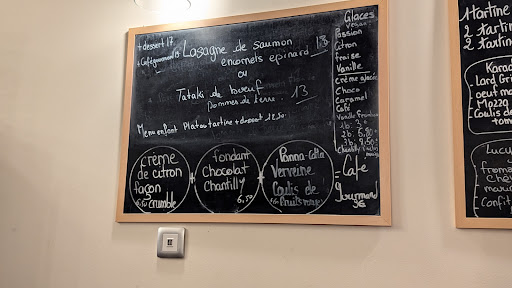 + dessert 17
+ Café gourmand 18
Lasagne de saumon
encornets epinard 13
ou
Tataki de bœuf
Pommes de terre. 13
Menu enfant Plat ou tartine + dessert 12.50
crème
de citron
façon
6,50 crumble
+
fondant
chocolat
chantilly
6,50
+
Panna-cotta
Verveine
Coulis de
fruits rouges
= Café
gourmand
9€
Glaces
vegan
Passion
Citron
fraise
Vanille
Crème glacée
Choco
Caramel
Café
Vanille
1b. 3
2b. 5,80
3b. 8,50
Chantilly
1 tartine
2 tartin
2 tartin
Karad
Lard Gri
oeuf mo
Mozza
Coulis de
tom
Lucu
froma
Chèv
Confit